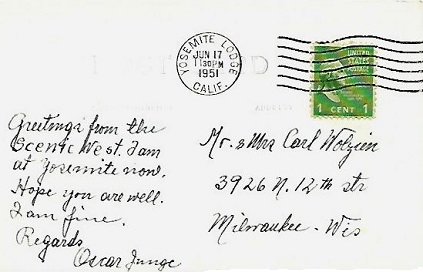 YOSEMITE LODGE
JUN 17
1 30PM
1951
CALIF.
UNITED
STATES
POSTAGE
1 CENT 1
Greetings from the
Scenic West. I am
at Yosemite now.
Hope you are well.
I am fine.
Regards
Oscar Junge
Mr. & Mrs Carl Wolzien
3926 N. 12th str
Milwaukee - Wis